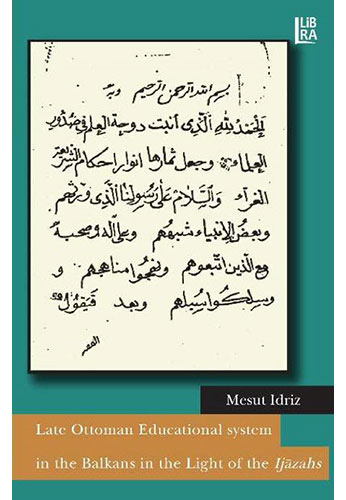 LiB
RA
بسم الله الرحمن الرحيم
الحمد لله الذي أنبت دوحة العلم في صدور
العلماء وجعل ثمارها انوار احكام الشريعة
الغراء والسلام على رسولنا الذي
وبعض الانبياء شبههم وعلى اله وصحبه
مع الذين اتبعوهم ونهجوا مناهجهم و
وسلكوا سبيلهم وبعد فيقول
الفقير
Mesut Idriz
Late Ottoman Educational system
in the Balkans in the Light of the Ijāzahs